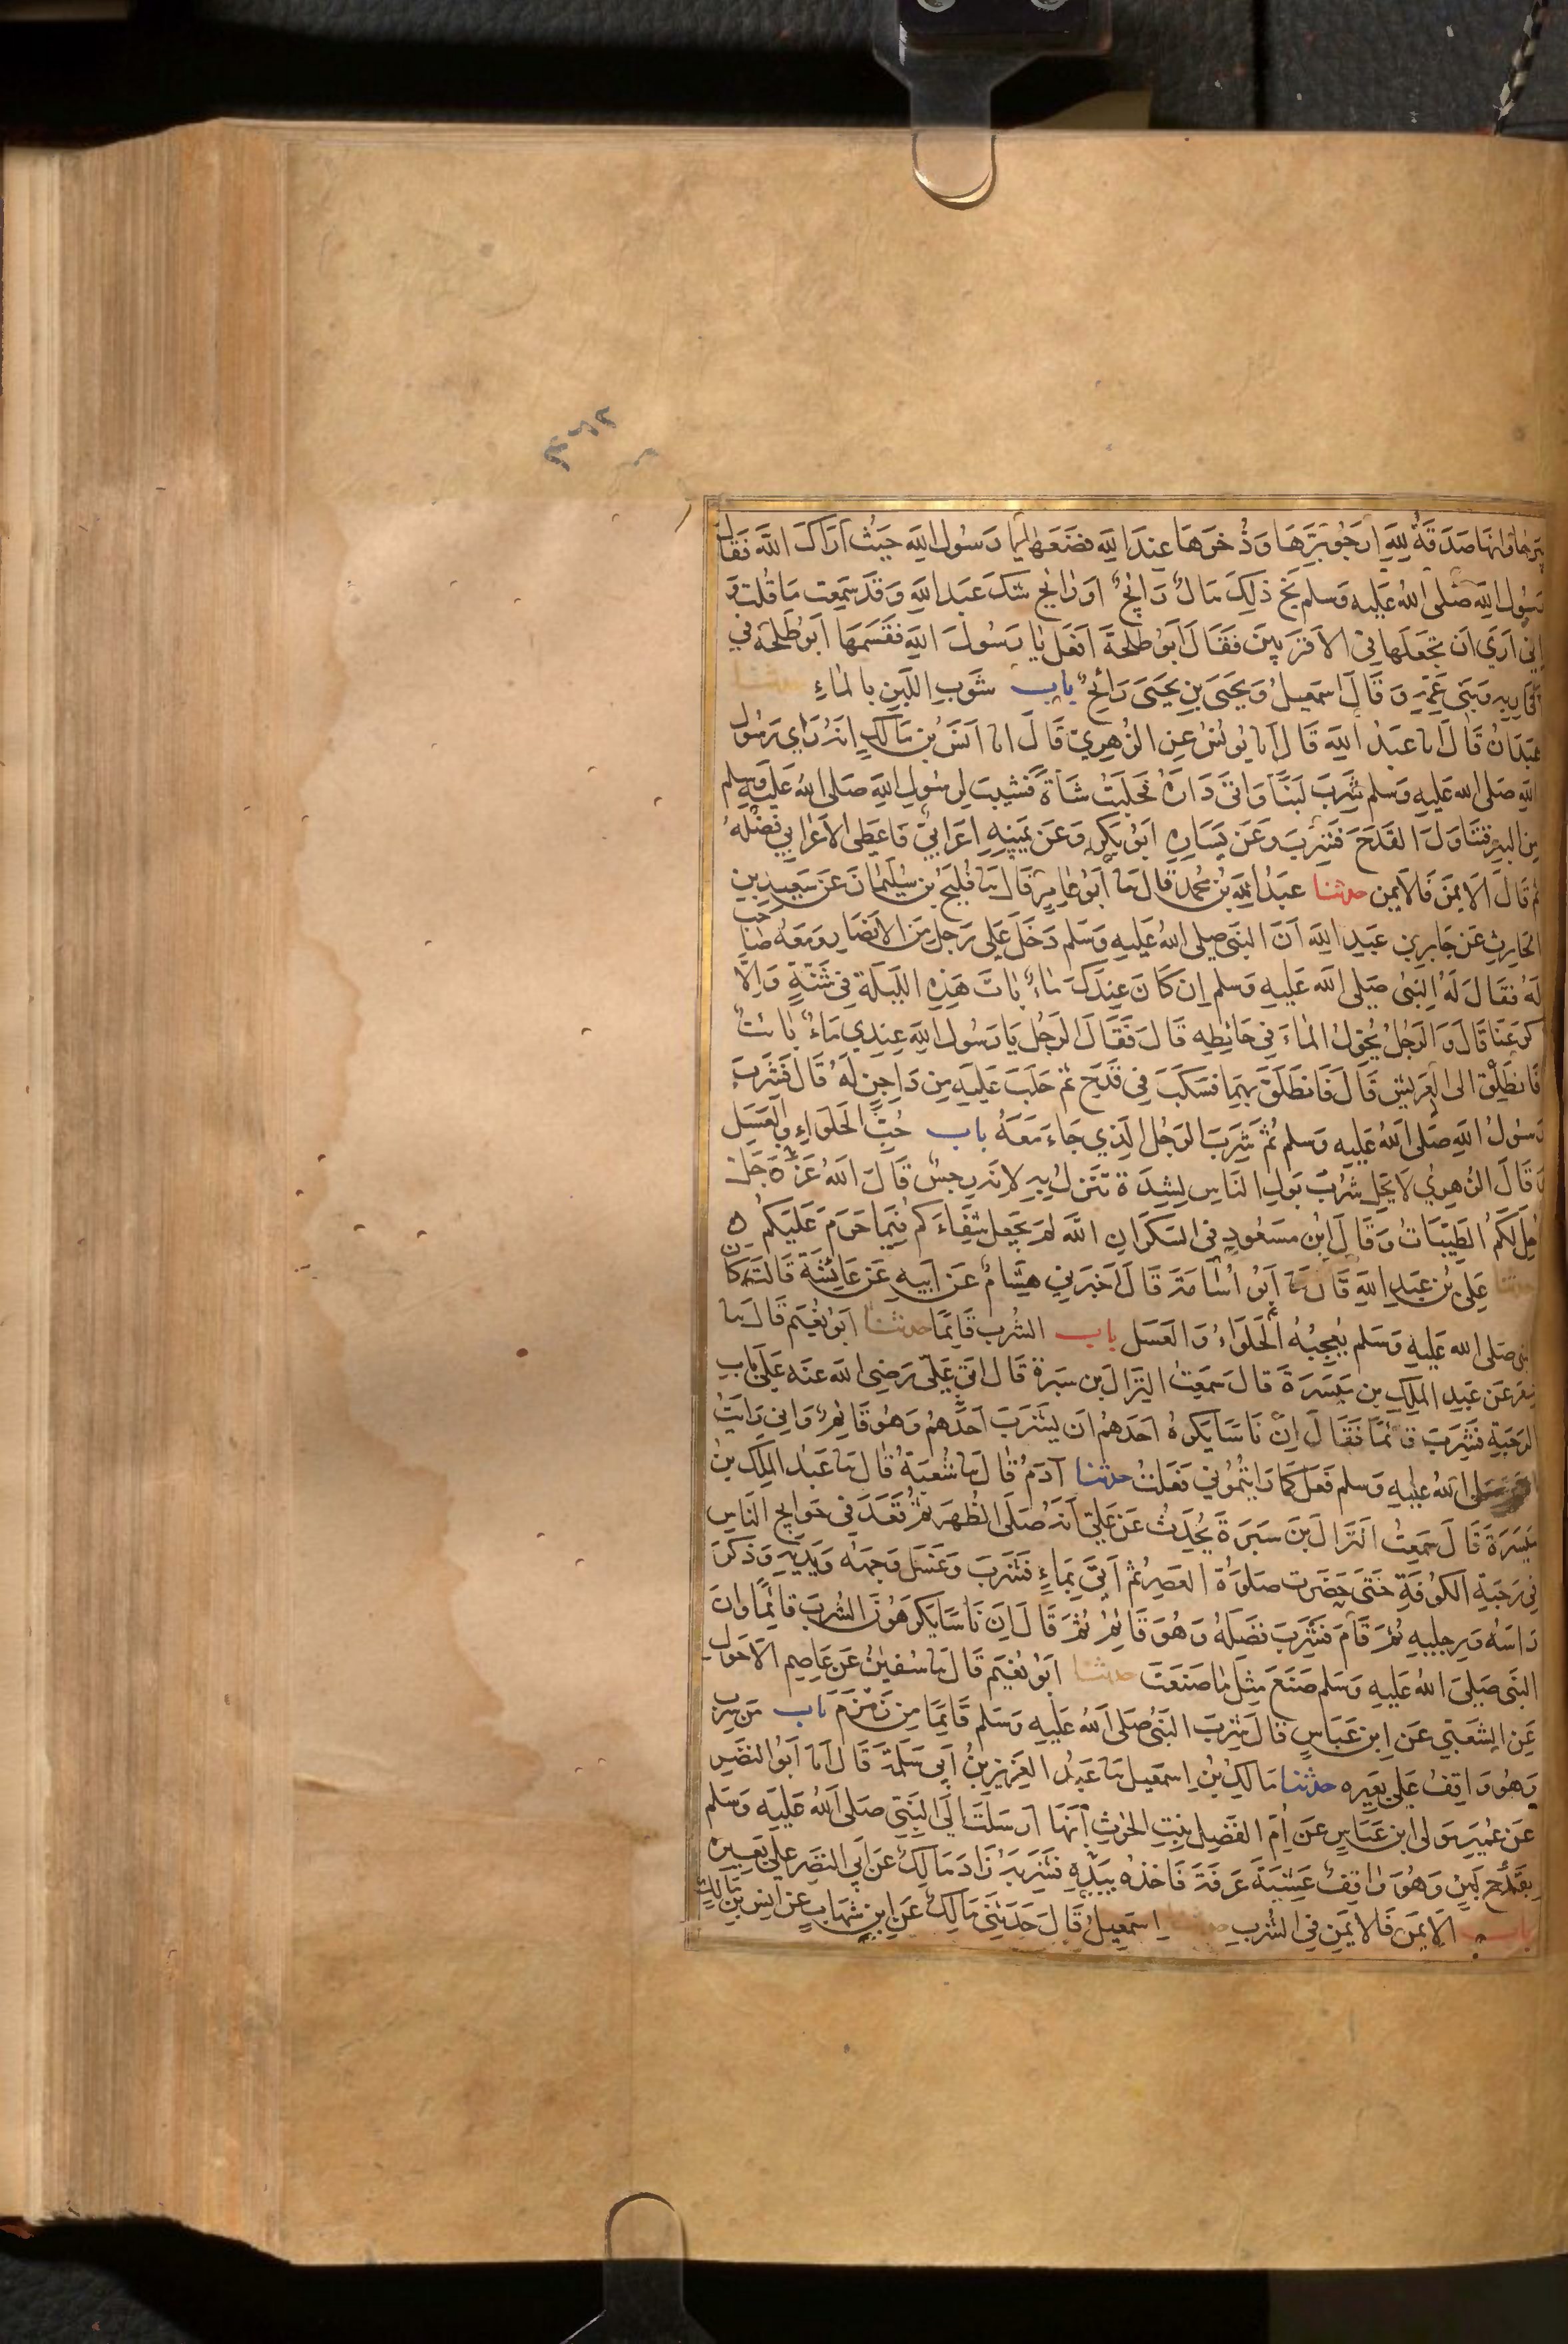 ٣٦٢
بيرحا وانها صدقة لله ارجو برها وذخرها عند الله فضعها يا رسول الله حيث اراك الله فقال
رسول الله صلى الله عليه وسلم بخ ذلك مال رابح او رايح شك عبد الله وقد سمعت ما قلت و
اني اري ان تجعلها في الاقربين فقال ابو طلحة افعل يا رسول الله فقسمها ابو طلحة في
اقاربه وبني عمه وقال اسمعيل ويحيى بن يحيى رائح باب شوب اللبن بالماء حدثنا
عبدان قال انا عبد الله قال انا يونس عن الزهري قال انا انس بن مالك انه راي رسول
الله صلى الله عليه وسلم شرب لبنا واتى داره فحلبت شاة فشيبت لرسول الله صلى الله عليه وسلم
من البير فتناول القدح فشرب وعن يساره ابو بكر وعن يمينه اعرابي فاعطى الاعرابي فضله
ثم قال الايمن فالايمن حدثنا عبد الله بن محمد قال ثنا ابو عامر قال ثنا فليح بن سليمان عن سعيد بن
الحارث عن جابر بن عبد الله ان النبي صلى الله عليه وسلم دخل على رجل من الانصار ومعه صاحب
له فقال له النبي صلى الله عليه وسلم ان كان عندك ماء بات هذه الليلة في شنة والا
كرعنا قال والرجل يحول الماء في حائطه قال فقال الرجل يا رسول الله عندي ماء بائت
فانطلق الى العريش قال فانطلق بهما فسكب في قدح ثم حلب عليه من داجن له قال فشرب
رسول الله صلى الله عليه وسلم ثم شرب الرجل الذي جاء معه باب حب الحلواء والعسل
وقال الزهري لا يحل شرب بول الناس لشدة تنزل به لانه رجس قال الله عز وجل
احل لكم الطيبات وقال ابن مسعود في السكر ان الله لم يجعل شفاءكم فيما حرم عليكم ه
حدثنا علي بن عبد الله قال ثنا ابو اسامة قال اخبرني هشام عن ابيه عن عائشة قالت كان
النبي صلى الله عليه وسلم يعجبه الحلواء والعسل باب الشرب قائما حدثنا ابو نعيم قال ثنا
مسعر عن عبد الملك بن ميسرة قال سمعت النزال بن سبرة قال اتي علي رضي الله عنه على باب
الرحبة فشرب قائما فقال ان ناسا يكره احدهم ان يشرب احدهم وهو قائم واني رايت
صلى الله عليه وسلم فعل كما رايتموني فعلت حدثنا آدم قال ثنا شعبة قال ثنا عبد الملك بن
ميسرة قال سمعت النزال بن سبرة يحدث عن علي انه صلى الظهر ثم قعد في حوايج الناس
في رحبة الكوفة حتى حضرت صلوة العصر ثم اتي بماء فشرب وغسل وجهه ويديه وذكر
راسه ورجليه ثم قام فشرب فضله وهو قائم ثم قال ان ناسا يكرهون الشرب قائما وان
النبي صلى الله عليه وسلم صنع مثل ما صنعت حدثنا ابو نعيم قال ثنا سفين عن عاصم الاحول
عن الشعبي عن ابن عباس قال شرب النبي صلى الله عليه وسلم قائما من زمزم باب من شرب
وهو واقف على بعيره حدثنا مالك بن اسمعيل ثنا عبد العزيز بن ابي سلمة قال انا ابو النضر
عن عمير مولى ابن عباس عن ام الفضل بنت الحرث انها ارسلت الي النبي صلى الله عليه وسلم
بقدح لبن وهو واقف عشية عرفة فاخذه بيده فشربه زاد مالك عن ابي النضر على بعيره
باب الايمن فالايمن في الشرب حدثنا اسمعيل قال حدثني مالك عن ابن شهاب عن انس بن مالك